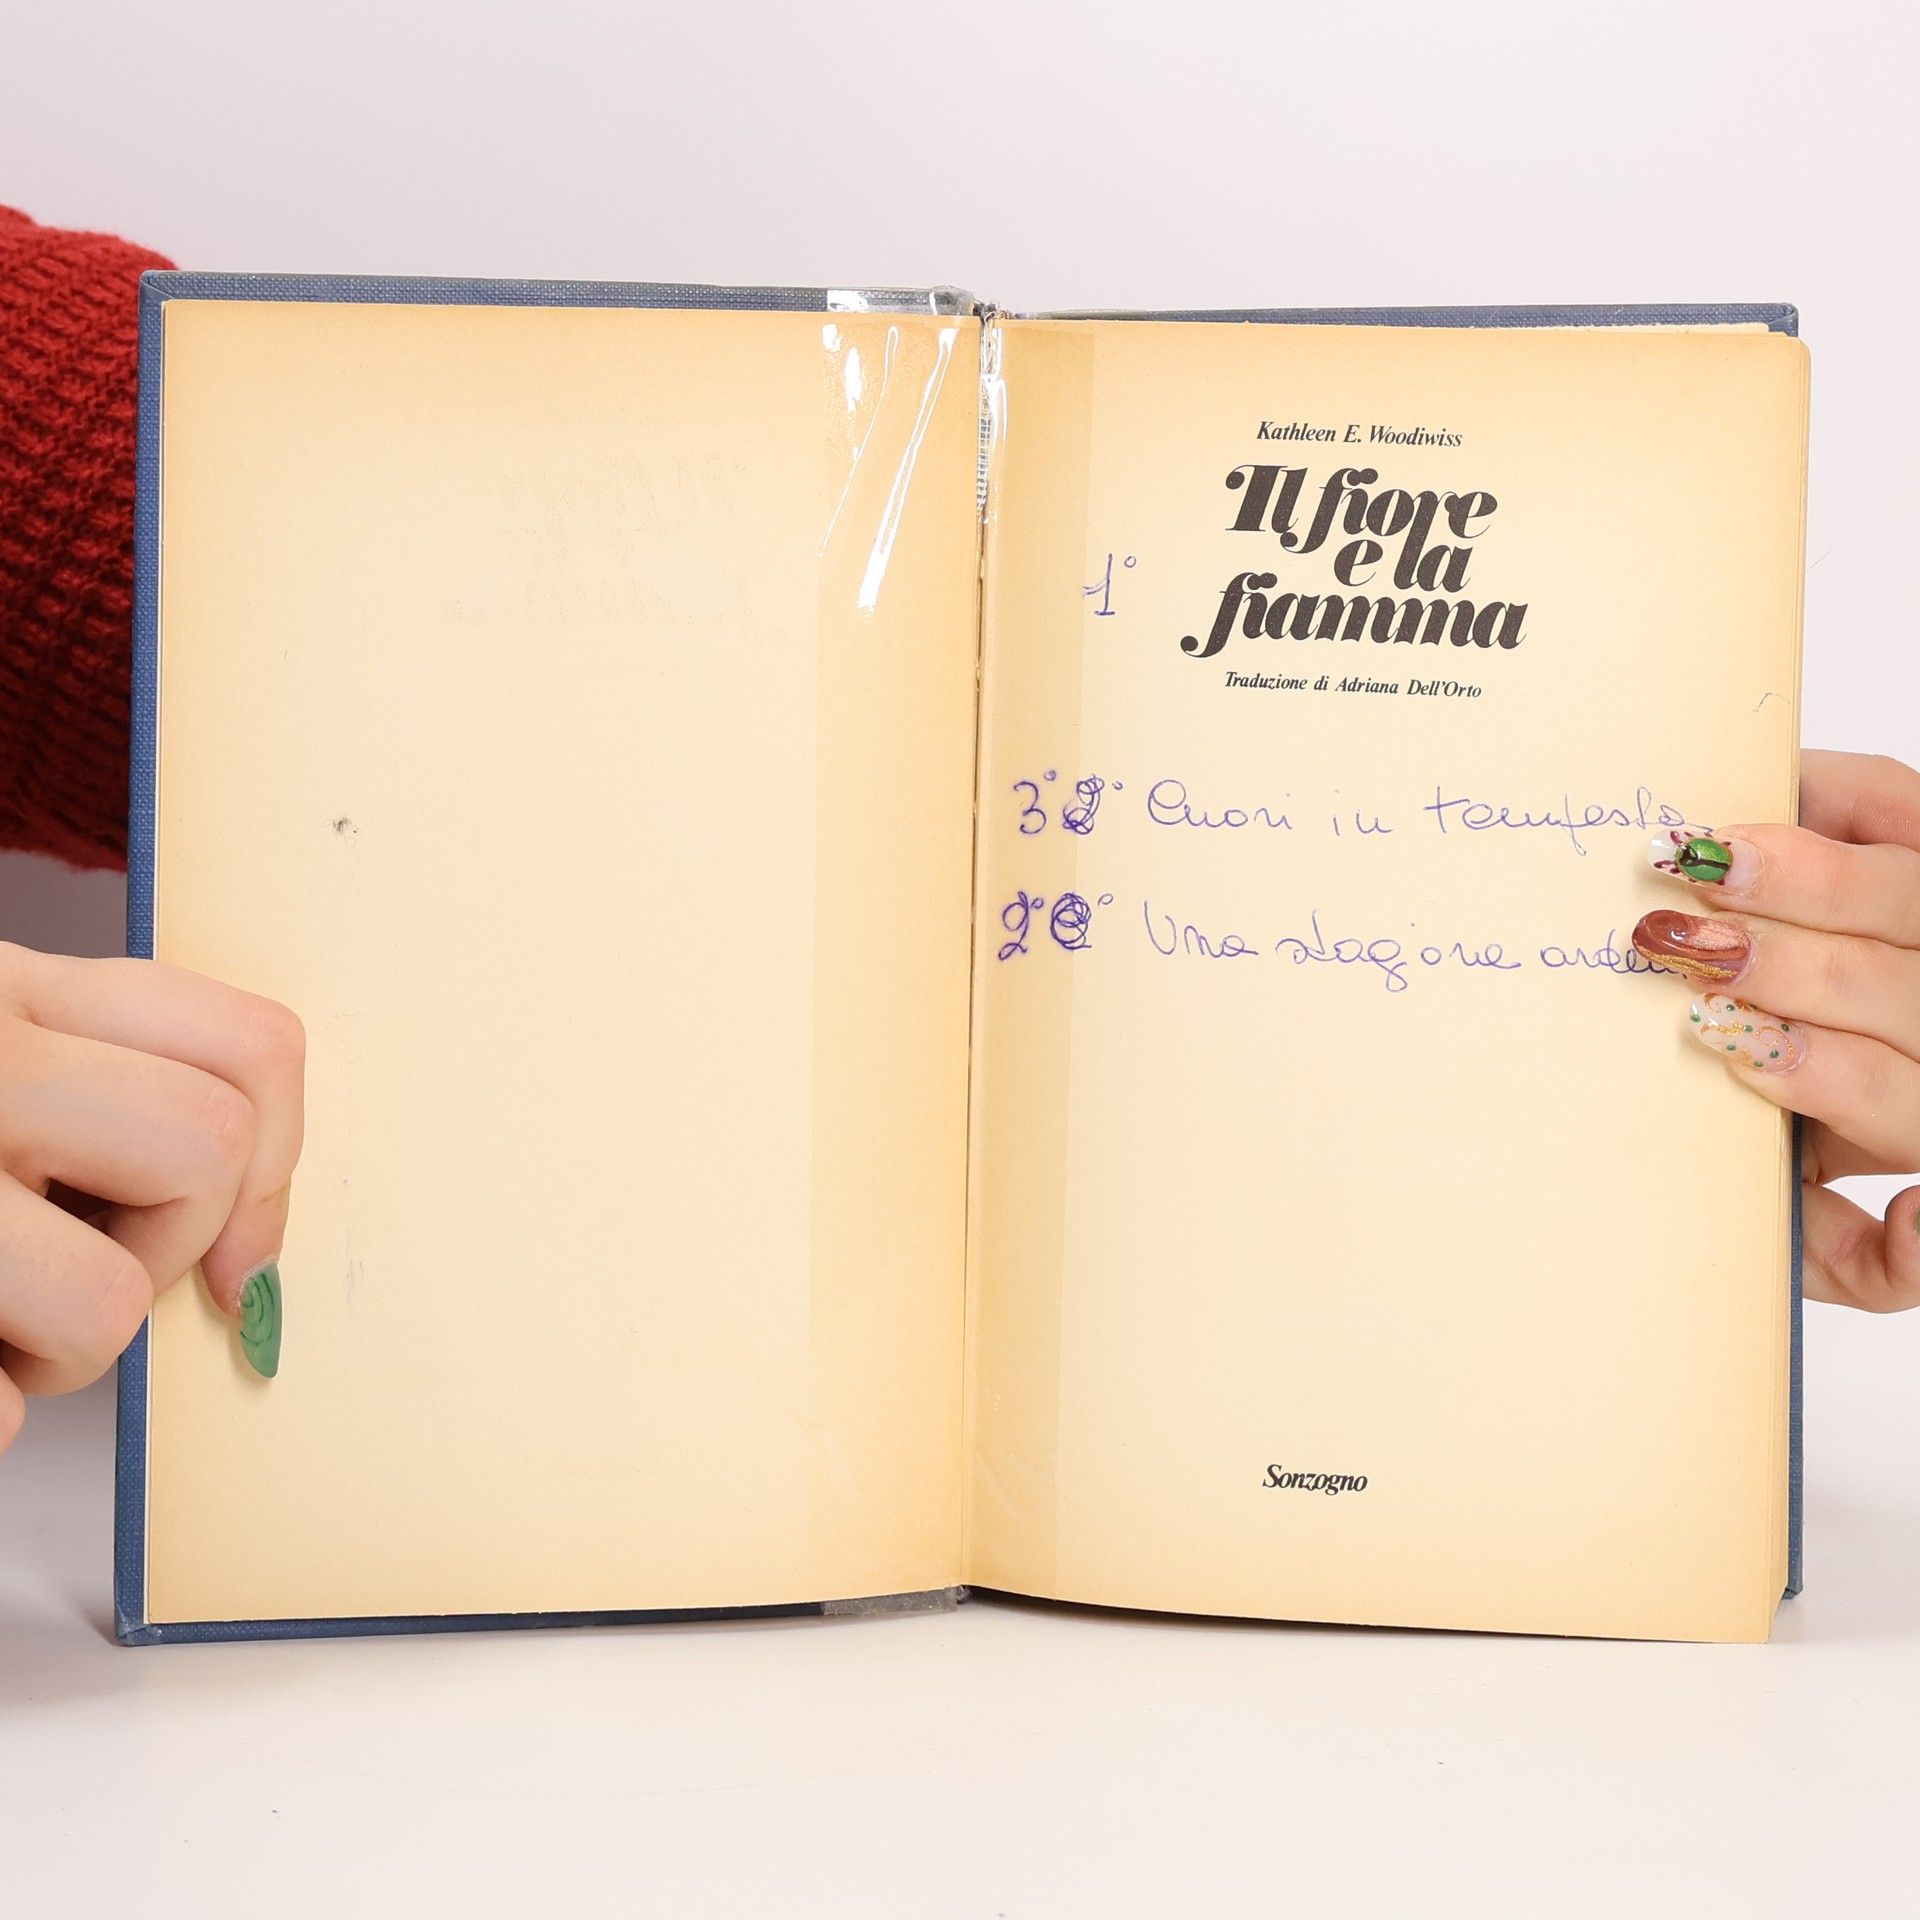 Kathleen E. Woodiwiss
Il fiore
e la
fiamma
1°
Traduzione di Adriana Dell'Orto
3° 2° Cuori in tempesta
2° Una stagione
Sonzogno